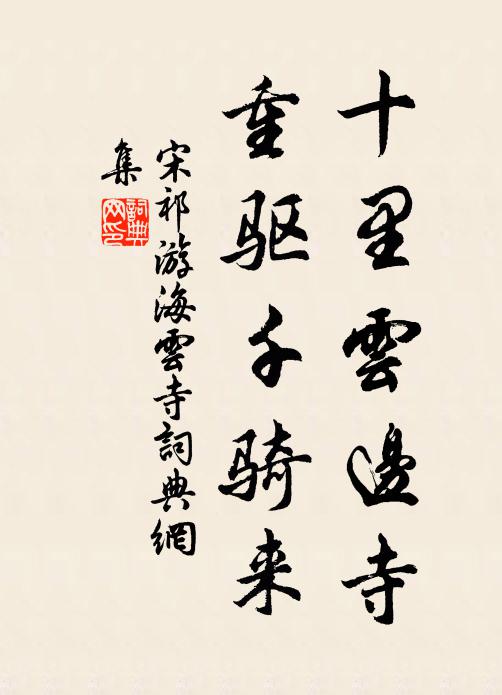 十里雲邊寺
重驱千骑来
宋祁游海雲寺詞典網
集
詞典
网印